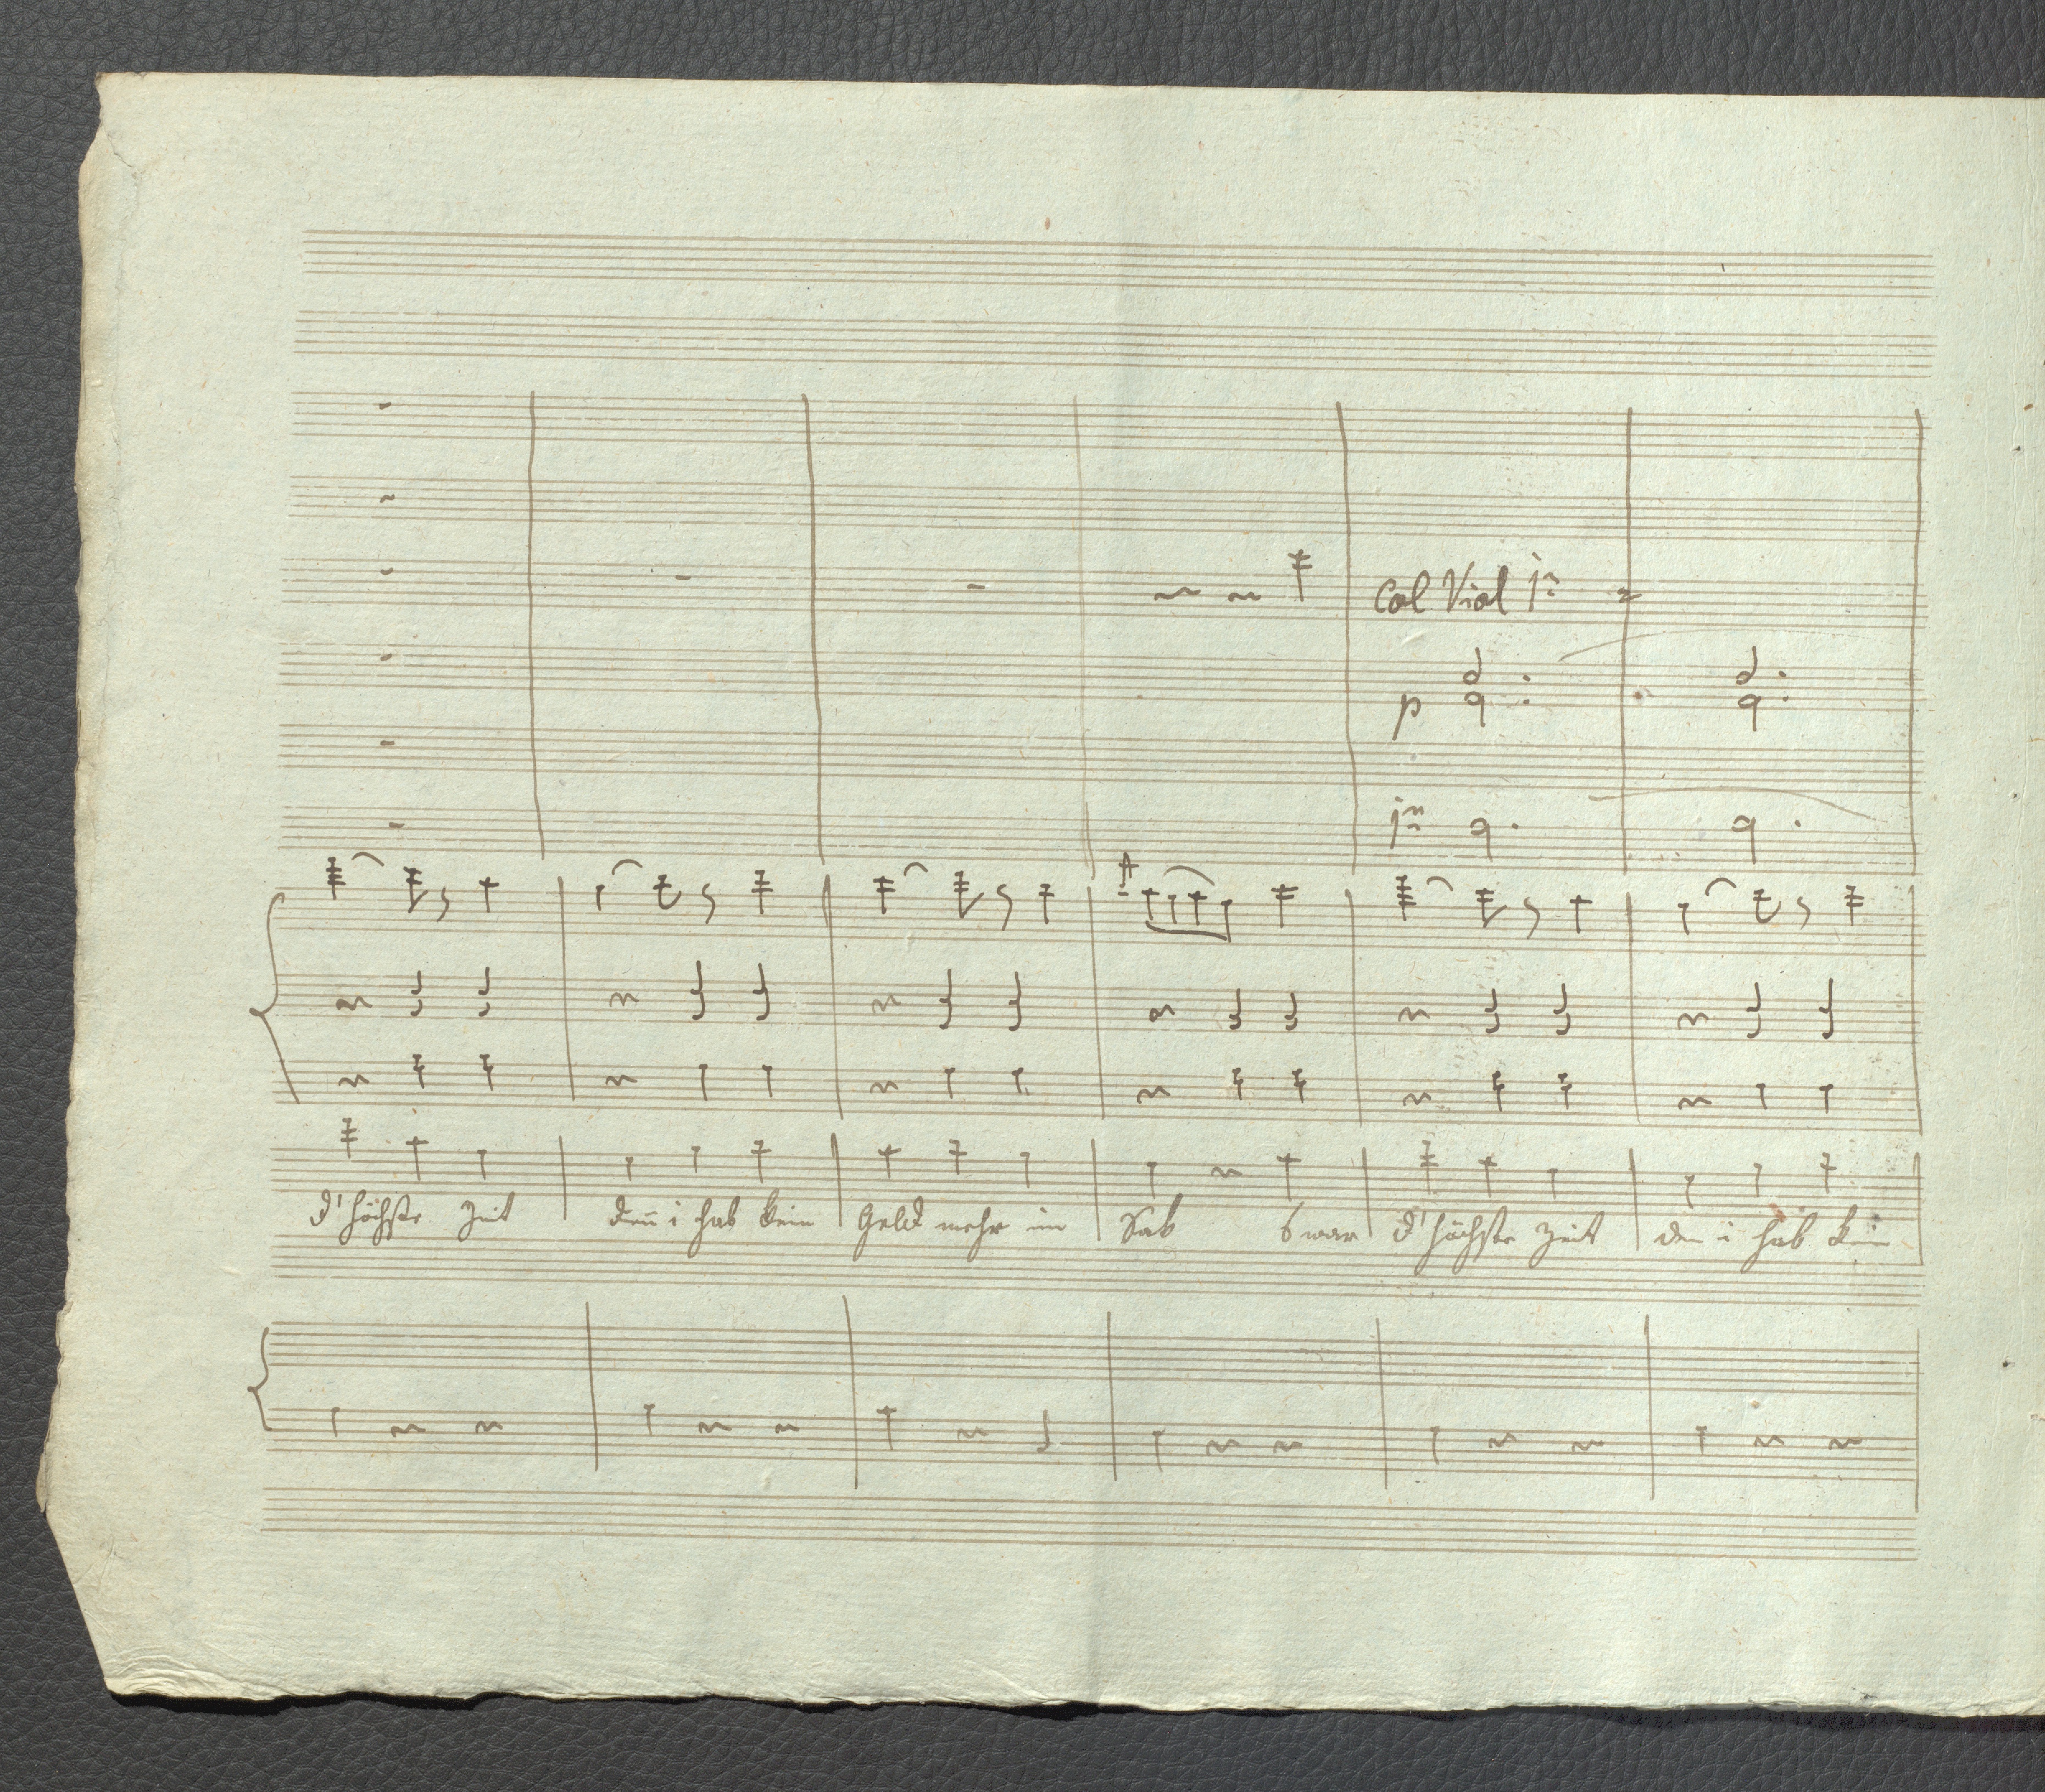 Col Viol 1mo
p
1mo
d' höchste Zeit deñ i hab kein Geld mehr im Sak s war d' höchste Zeit den i hab kein